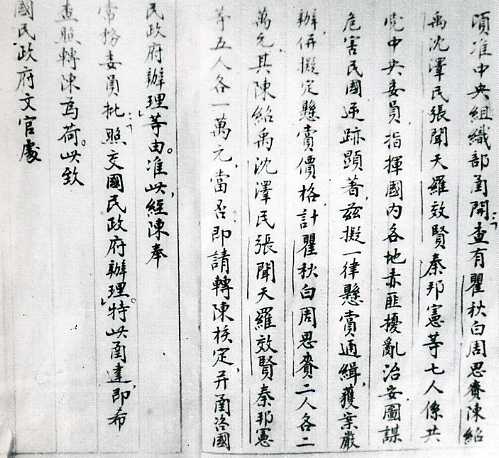 頃准中央組織部函開查有瞿秋白周恩賚陳紹
禹沈澤民張聞天羅效賢秦邦憲等七人係共
党中央委員指揮國內各地赤匪擾亂治安圖謀
危害民國逆跡顯著茲擬一律懸賞通緝獲案嚴
辦併擬定懸賞價格計瞿秋白周恩賚二人各二
萬元其陳紹禹沈澤民張聞天羅效賢秦邦憲
等五人各一萬元當否即請轉陳核定并函洛國
民政府辦理等由准此經陳奉
常務委員批照交國民政府辦理。特此函達即希
查照轉陳為荷。此致
國民政府文官處